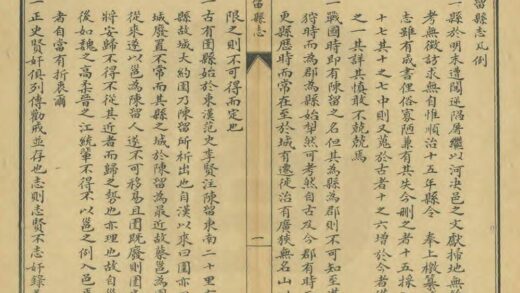 留縣志凡例
一縣於明末遭闖逆隔屠繼以河决邑之文獻掃地無
考無徵訪求無自惟順治十五年縣令 奉上檄纂
志雖有成書俚俗寡陋兼有其失今刪之者十五採
十七其十之七中則又蒐於古者十之六增於今者
之一其詳其慎敢不兢兢焉
一戰國時即有陳留之名但其為縣為郡則不可知至
狩時而為郡為縣始犂然可考然自古及今郡有時
更縣歷時而常在至於城有遷徙治有廣狹無名山
留縣志
一
限之則不可得而定也
一古有圉縣始於東漢范史李賢注陳留東南二十里
縣故城大約圉乃陳留所析出也自漢以來曰圉亦
城廢置不常而其縣之城於陳留為最近故蔡邕為
從來遂以邕為陳留人遂不可移易且圉既廢則圉
將安歸不得不從其近者而歸之勢也亦理也故自
後如魏之高柔晉之江統輩不得不以邕之例入邑
者自當有折衷爾
一正史賢奸俱列傳勸戒並存也志則志賢不志奸